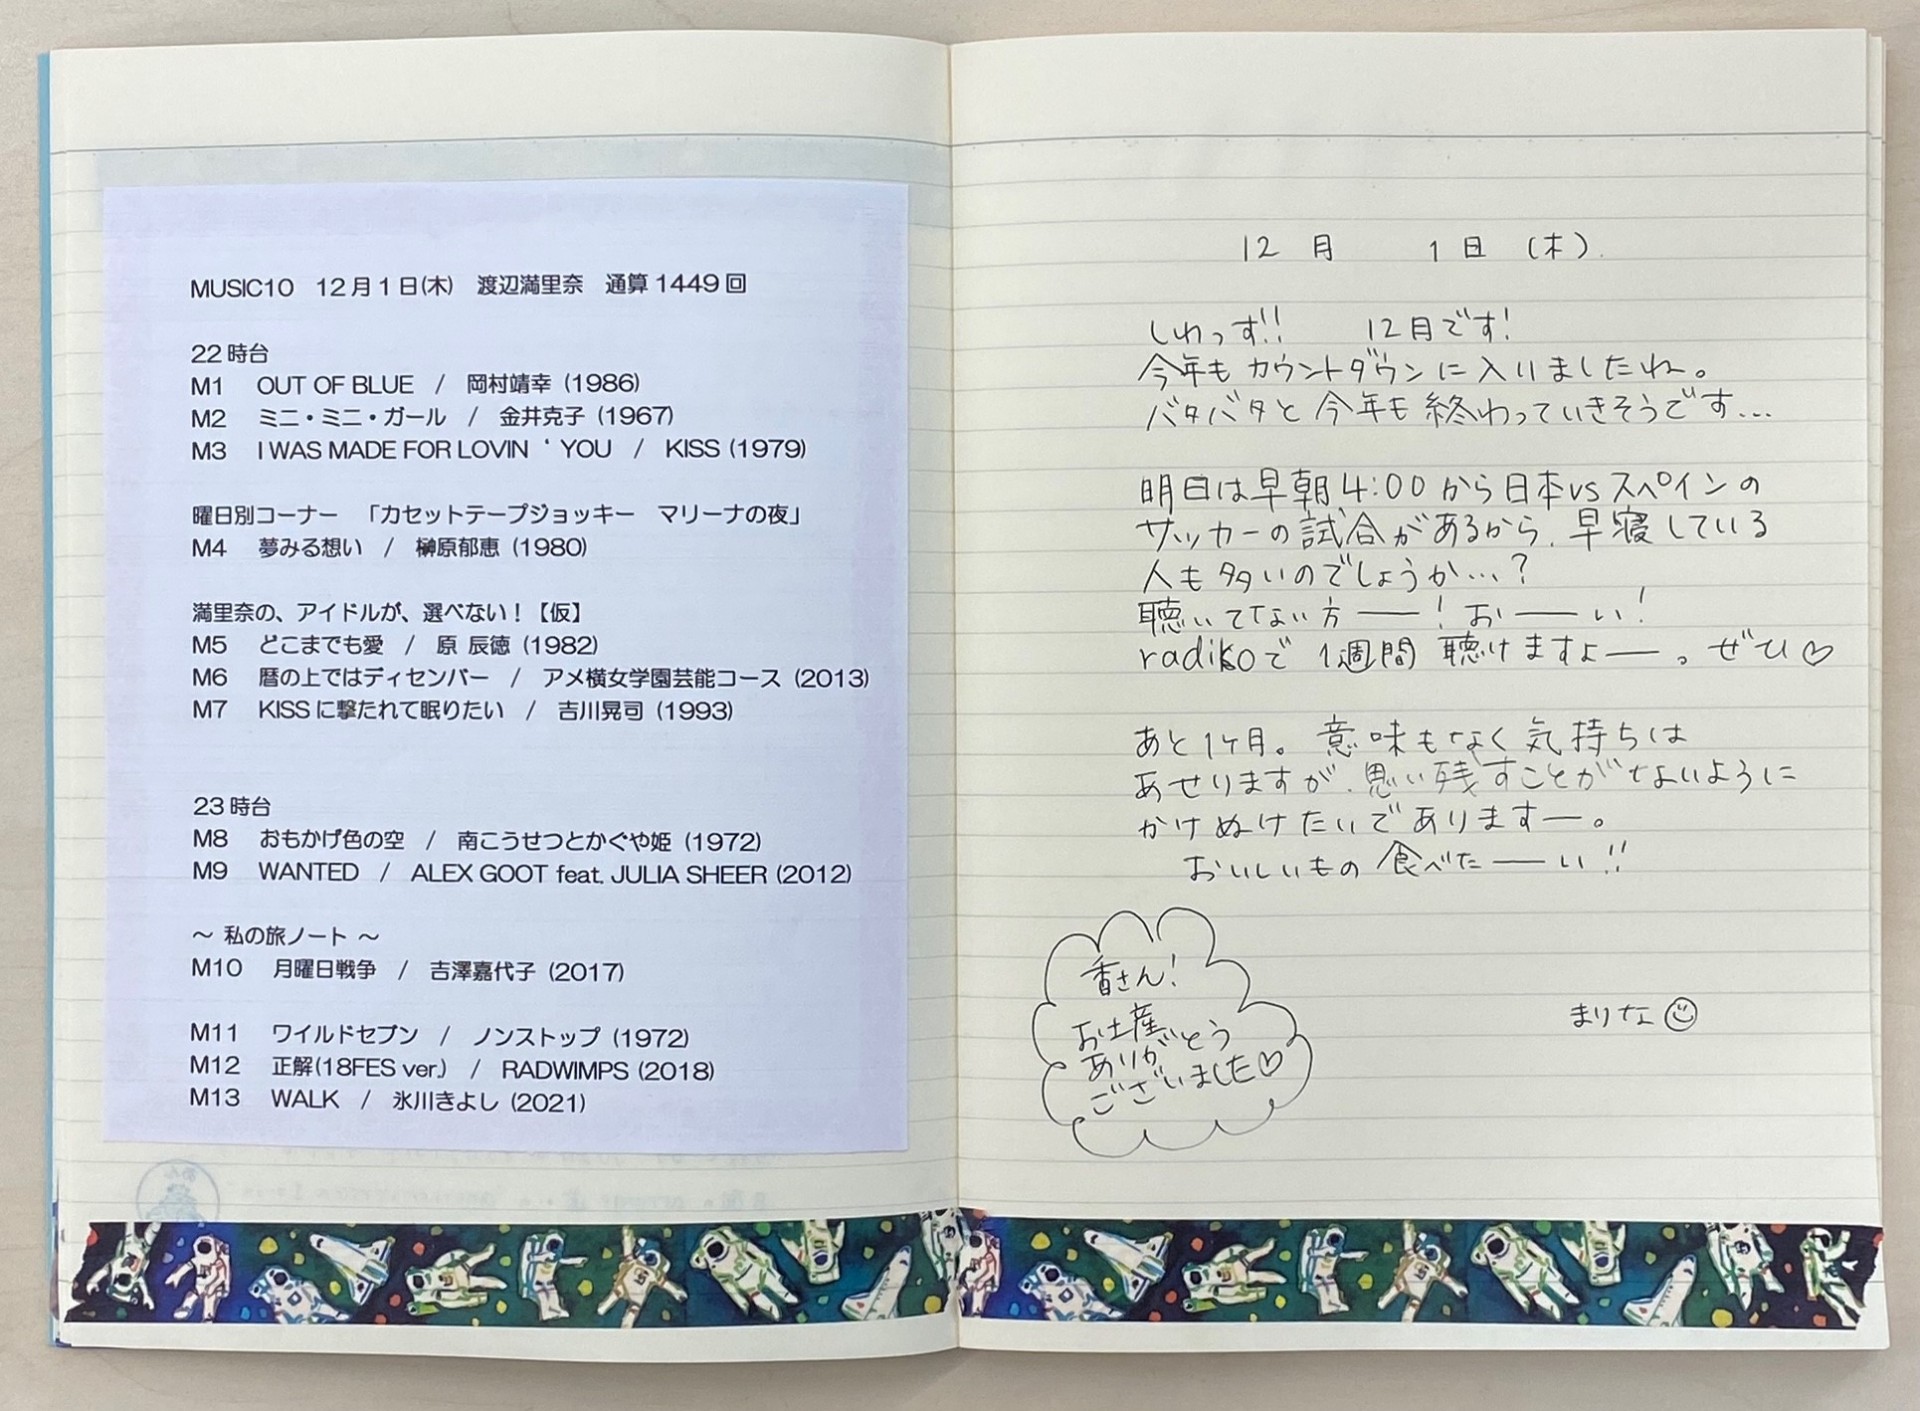 MUSIC10 12月1日(木) 渡辺満里奈 通算1449回
22時台
M1 OUT OF BLUE / 岡村靖幸 (1986)
M2 ミニ・ミニ・ガール / 金井克子 (1967)
M3 I WAS MADE FOR LOVIN ‘ YOU / KISS (1979)
曜日別コーナー 「カセットテープジョッキー マリーナの夜」
M4 夢みる想い / 榊原郁恵 (1980)
満里奈の、アイドルが、選べない！【仮】
M5 どこまでも愛 / 原 辰徳 (1982)
M6 暦の上ではディセンバー / アメ横女学園芸能コース (2013)
M7 KISSに撃たれて眠りたい / 吉川晃司 (1993)
23時台
M8 おもかげ色の空 / 南こうせつとかぐや姫 (1972)
M9 WANTED / ALEX GOOT feat. JULIA SHEER (2012)
～ 私の旅ノート ～
M10 月曜日戦争 / 吉澤嘉代子 (2017)
M11 ワイルドセブン / ノンストップ (1972)
M12 正解(18FES ver.) / RADWIMPS (2018)
M13 WALK / 氷川きよし (2021)
12月 1日 (木).
しわっす!! 12月です!
今年もカウントダウンに入りましたねー。
バタバタと今年も終わっていきそうです...
明日は早朝4:00から日本vsスペインの
サッカーの試合があるから、早寝している
人も多いのでしょうか...?
聴いてない方——! お——い!
radikoで1週間聴けますよ——。ぜひ♡
あと1ヶ月。意味もなく気持ちは
あせりますが、思い残すことがないように
かけぬけたいであります—。
おいしいもの食べた——い!!
香さん!
お土産
ありがとう
ございました♡
まりな☺